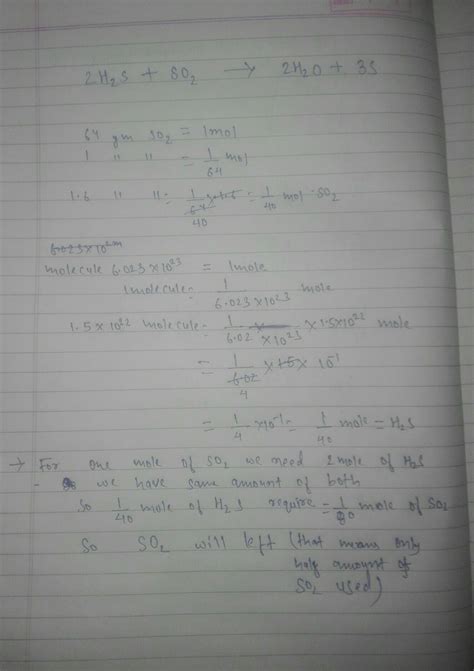 2H₂S + SO₂ → 2H₂O + 3S
64 gm SO₂ = 1mol
1 " " = 1/64 mol
1.6 " " = 1/64 × 1.6 = 1/40 mol SO₂
40
molecule 6.023×10²³ = 1mole
1molecule = 1/6.023×10²³ mole
1.5×10²² molecule = 1/6.02×10²³ × 1.5×10²² mole
= 1/6.02 × 1.5 × 10⁻¹
4
= 1/4 ×10⁻¹ = 1/40 mole = H₂S
→ For one mole of SO₂ we need 2mole of H₂S
- we have same amount of both
So 1/40 mole of H₂S require = 1/80 mole of SO₂
So SO₂ will left (that means only
half amount of
SO₂ used)